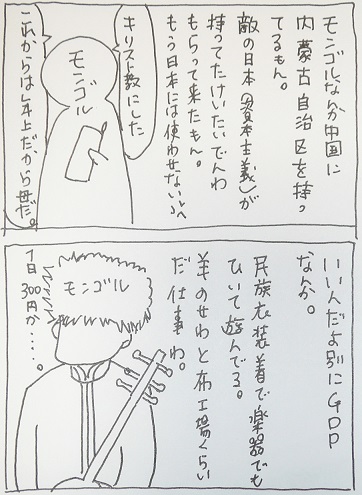 モンゴルなんか中国に
内蒙古自治区を持っ
てるもん。
敵の日本(資本主義)が
持ってたけいたいでんわ
もらって来たもん。
もう日本には使わせない
キリスト教にした
モンゴル
これからは年上だから母だ。
いいんだよ別にGDP
なんか。
民族衣装着で楽器でも
ひいて遊んでる。
羊のせわと布工場くらい
だ仕事わ。
モンゴル
1日
300円か・・・・。